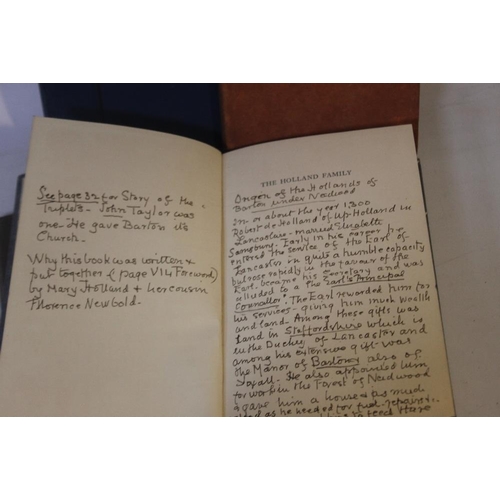 See page 32 for Story of the
Triplets - John Taylor was
one. He gave Barton its
Church.
Why this book was written &
put together (page VII Foreword)
by Mary Holland & her cousin
Florence New Gold.
THE HOLLAND FAMILY
Origin of the Hollands of
Barton under Needwood
In or about the year 1,300
Robert de Holland of Up Holland in
Lancashire - married Elizabeth
Samsbury. Early in his career he
entered the service of the Earl of
Lancaster in quite a humble capacity
but rose rapidly in the favour of the
Earl, became his Secretary and was
alluded to as the "Earl's Principal
Councillor". The Earl rewarded him for
his services - giving him much wealth
and land - Among these gifts was
Land in Staffordshire which is
in the Duchy of Lancaster and
among his extensive gift - was
the Manor of Barton also of
Yoxall. He also appointed him
to work in the Forest of Needwood
& gave him a house & as much
as he needed for fuel - repairs &
to feed